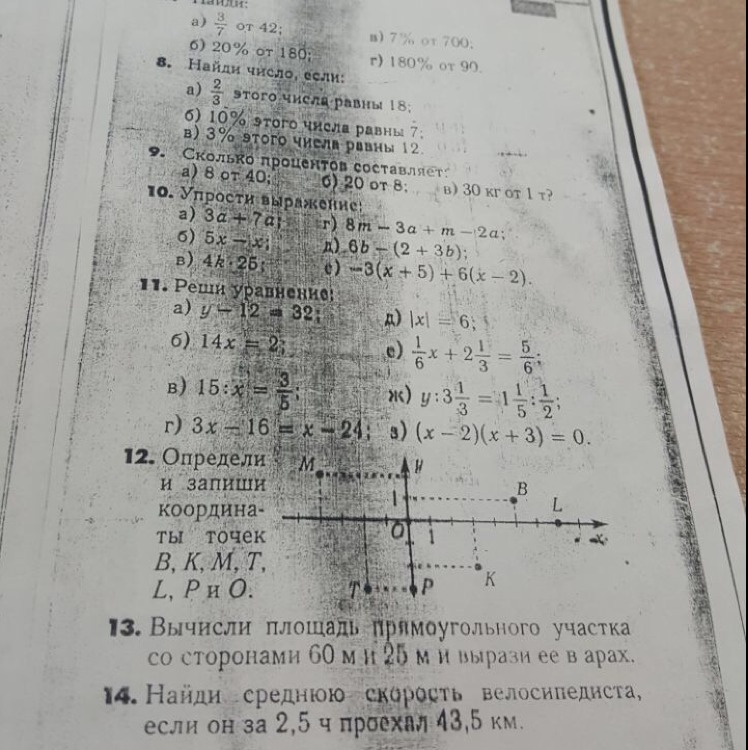 Найди:
а) 3/7 от 42;
в) 7% от 700;
б) 20% от 180;
г) 180% от 90.
8. Найди число, если:
а) 2/3 этого числа равны 18;
б) 10% этого числа равны 7;
в) 3% этого числа равны 12.
9. Сколько процентов составляет:
а) 8 от 40; б) 20 от 8; в) 30 кг от 1 т?
10. Упрости выражение:
а) 3a + 7a; г) 8m − 3a + m − 2a;
б) 5x − x; д) 6b − (2 + 3b);
в) 4k · 25; е) −3(x + 5) + 6(x − 2).
11. Реши уравнение:
а) y − 12 = 32; д) |x| = 6;
б) 14x = 2; е) 1/6 x + 2 1/3 = 5/6;
в) 15 : x = 3/5; ж) y : 3 1/3 = 1 1/5 : 1/2;
г) 3x − 16 = x − 24; з) (x − 2)(x + 3) = 0.
12. Определи
и запиши
координа-
ты точек
B, K, M, T,
L, P и O.
M y
1 B
L
O 1 x
K
T P
13. Вычисли площадь прямоугольного участка
со сторонами 60 м и 25 м и вырази ее в арах.
14. Найди среднюю скорость велосипедиста,
если он за 2,5 ч проехал 43,5 км.